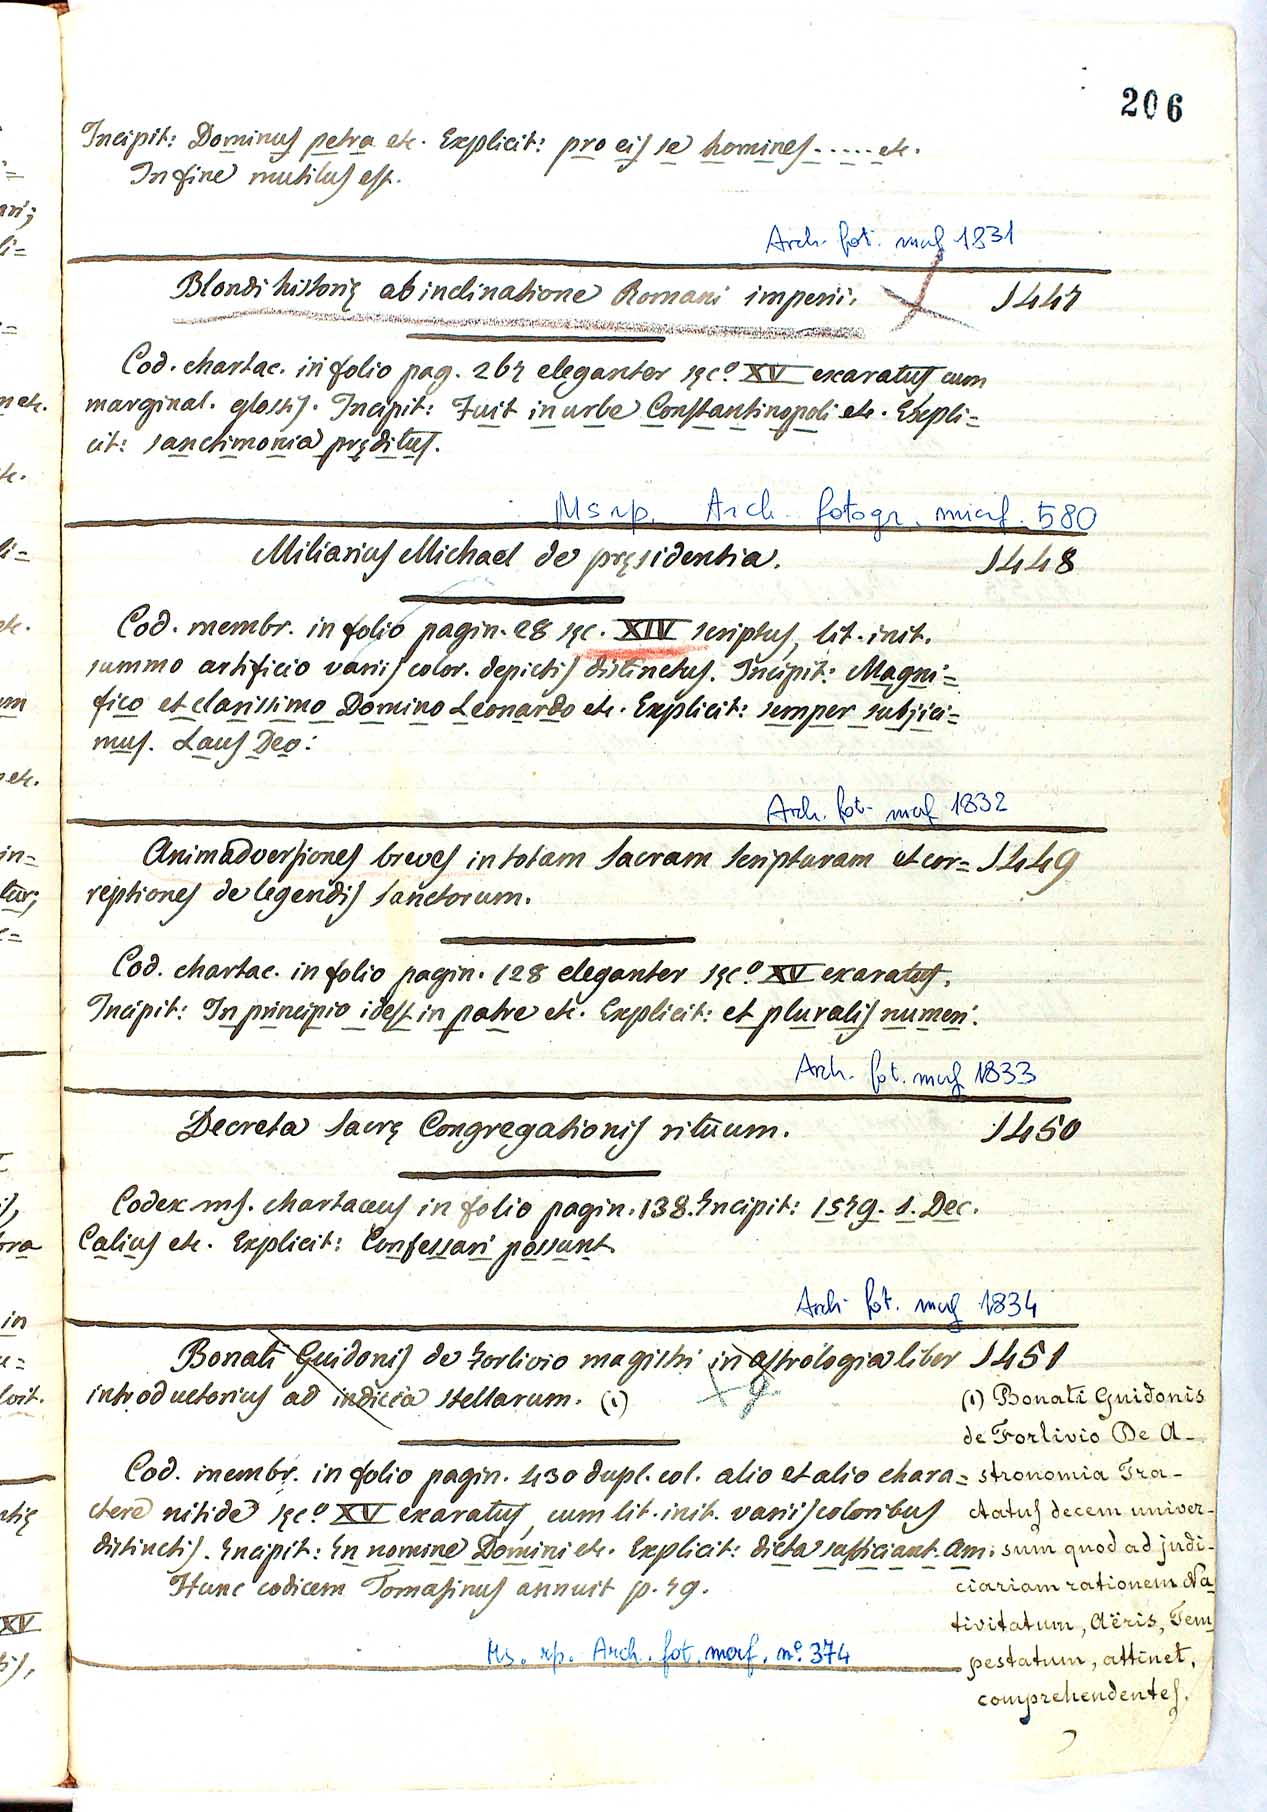 206
Incipit: Dominus petra etc. Explicit: pro eis se homines ..... etc.
In fine mutilus est.
Arch. fot. mcf 1831
Blondi historię ab inclinatione Romani imperii. 1447
Cod. chartac. in folio pag. 267 eleganter sęc.º XV exaratus cum
marginal. glossis. Incipit: Fuit in urbe Constantinopoli etc. Expli=
cit: sanctimonia pręditus.
Ms rp. Arch. fotogr. microf. 580
Miliarius Michael de pręsidentia. 1448
Cod. membr. in folio pagin. 28 sęc. XIV scriptus, lit. init.
summo artificio variis color. depictis distinctus. Incipit: Magni=
fico et clarissimo Domino Leonardo etc. Explicit: semper subjici=
mus. Laus Deo:
Arch. fot. mcf 1832
Animadversiones breves in totam sacram scripturam et cor= 1449
reptiones de legendis sanctorum.
Cod. chartac. in folio pagin. 128 eleganter sęc.º XV exaratus.
Incipit: In principio idest in patre etc. Explicit: et pluralis numeri.
Arch. fot. mcf 1833
Decreta sacrę Congregationis rituum. 1450
Codex ms. chartaceus in folio pagin. 138. Incipit: 1579. 1. Dec.
Calius etc. Explicit: Confessari possunt.
Arch. fot. mcf 1834
Bonati Guidonis de Forlivio magistri in astrologia liber 1451
introductorius ad indicia stellarum. (1)
Cod. membr. in folio pagin. 430 dupl. col. alio et alio chara=
ctere nitide sęc.º XV exaratus, cum lit. init. variis coloribus
distinctis. Incipit: In nomine Domini etc. Explicit: dicta sufficiant. Am:
Hunc codicem Tomasinus annuit p. 79.
Ms. rp. Arch. fot. mcrf. nº. 374
(1) Bonati Guidonis
de Forlivio De A-
stronomia Tra-
ctatus decem univer-
sum quod ad judi-
ciariam rationem Na
tivitatum, Aëris, Tem
pestatum, attinet,
comprehendentes.